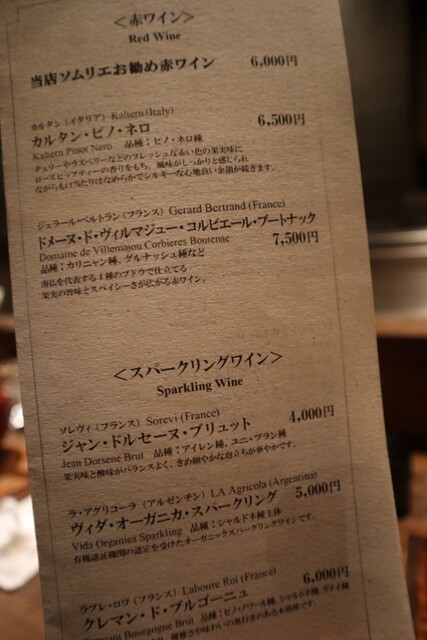 ＜赤ワイン＞
Red Wine
当店ソムリエお勧め赤ワイン 6,000円
カルタン（イタリア）Kaltern (Italy)
カルタン・ピノ・ネロ 6,500円
Kaltern Pinot Nero 品種：ピノ・ネロ種
チェリーやラズベリーなどのフレッシュな赤い色の果実味に
ローズヒップティーの香りをもち、風味がしっかりと感じられ
ながらも口当たりはなめらかでシルキーな心地良い余韻が続きます。
ジェラール・ベルトラン（フランス）Gerard Bertrand (France)
ドメーヌ・ド・ヴィルマジュー・コルビエール・ブートナック
Domaine de Villemajou Corbieres Boutenac 7,500円
品種：カリニャン種、グルナッシュ種など
南仏を代表する4種のブドウで仕立てる
果実の旨味とスパイシーさが広がる赤ワイン。
＜スパークリングワイン＞
Sparkling Wine
ソレヴィ（フランス）Sorevi (France)
ジャン・ドルセーヌ・ブリュット 4,000円
Jean Dorsene Brut 品種：アイレン種、ユニ・ブラン種
果実味と酸味がバランスよく、きめ細やかな泡立ちが華やかです。
ラ・アグリコーラ（アルゼンチン）LA Agricola (Argentina)
ヴィダ・オーガニカ・スパークリング 5,000円
Vida Organica Sparkling 品種：シャルドネ種主体
有機認証機関の認定を受けたオーガニックスパークリングワインです。
ラブレ・ロワ（フランス）Laboure Roi (France)
クレマン・ド・ブルゴーニュ 6,000円
Bourgogne Brut 品種：ピノ・ノワール種、シャルドネ種、ガメイ種